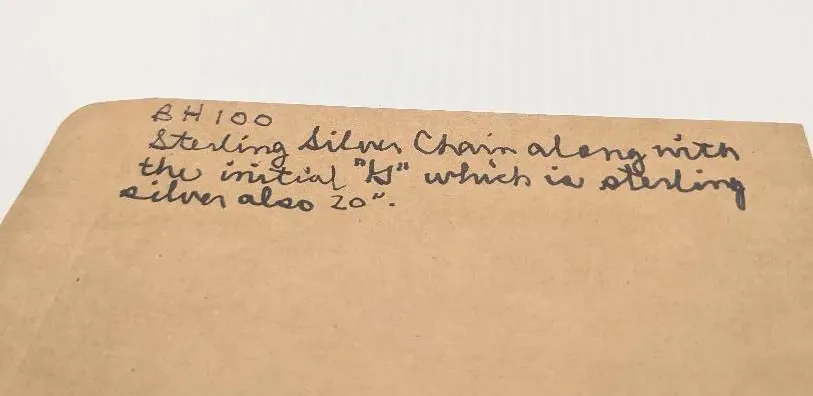 BH100
Sterling Silver Chain along with
the initial "G" which is sterling
silver also 20".